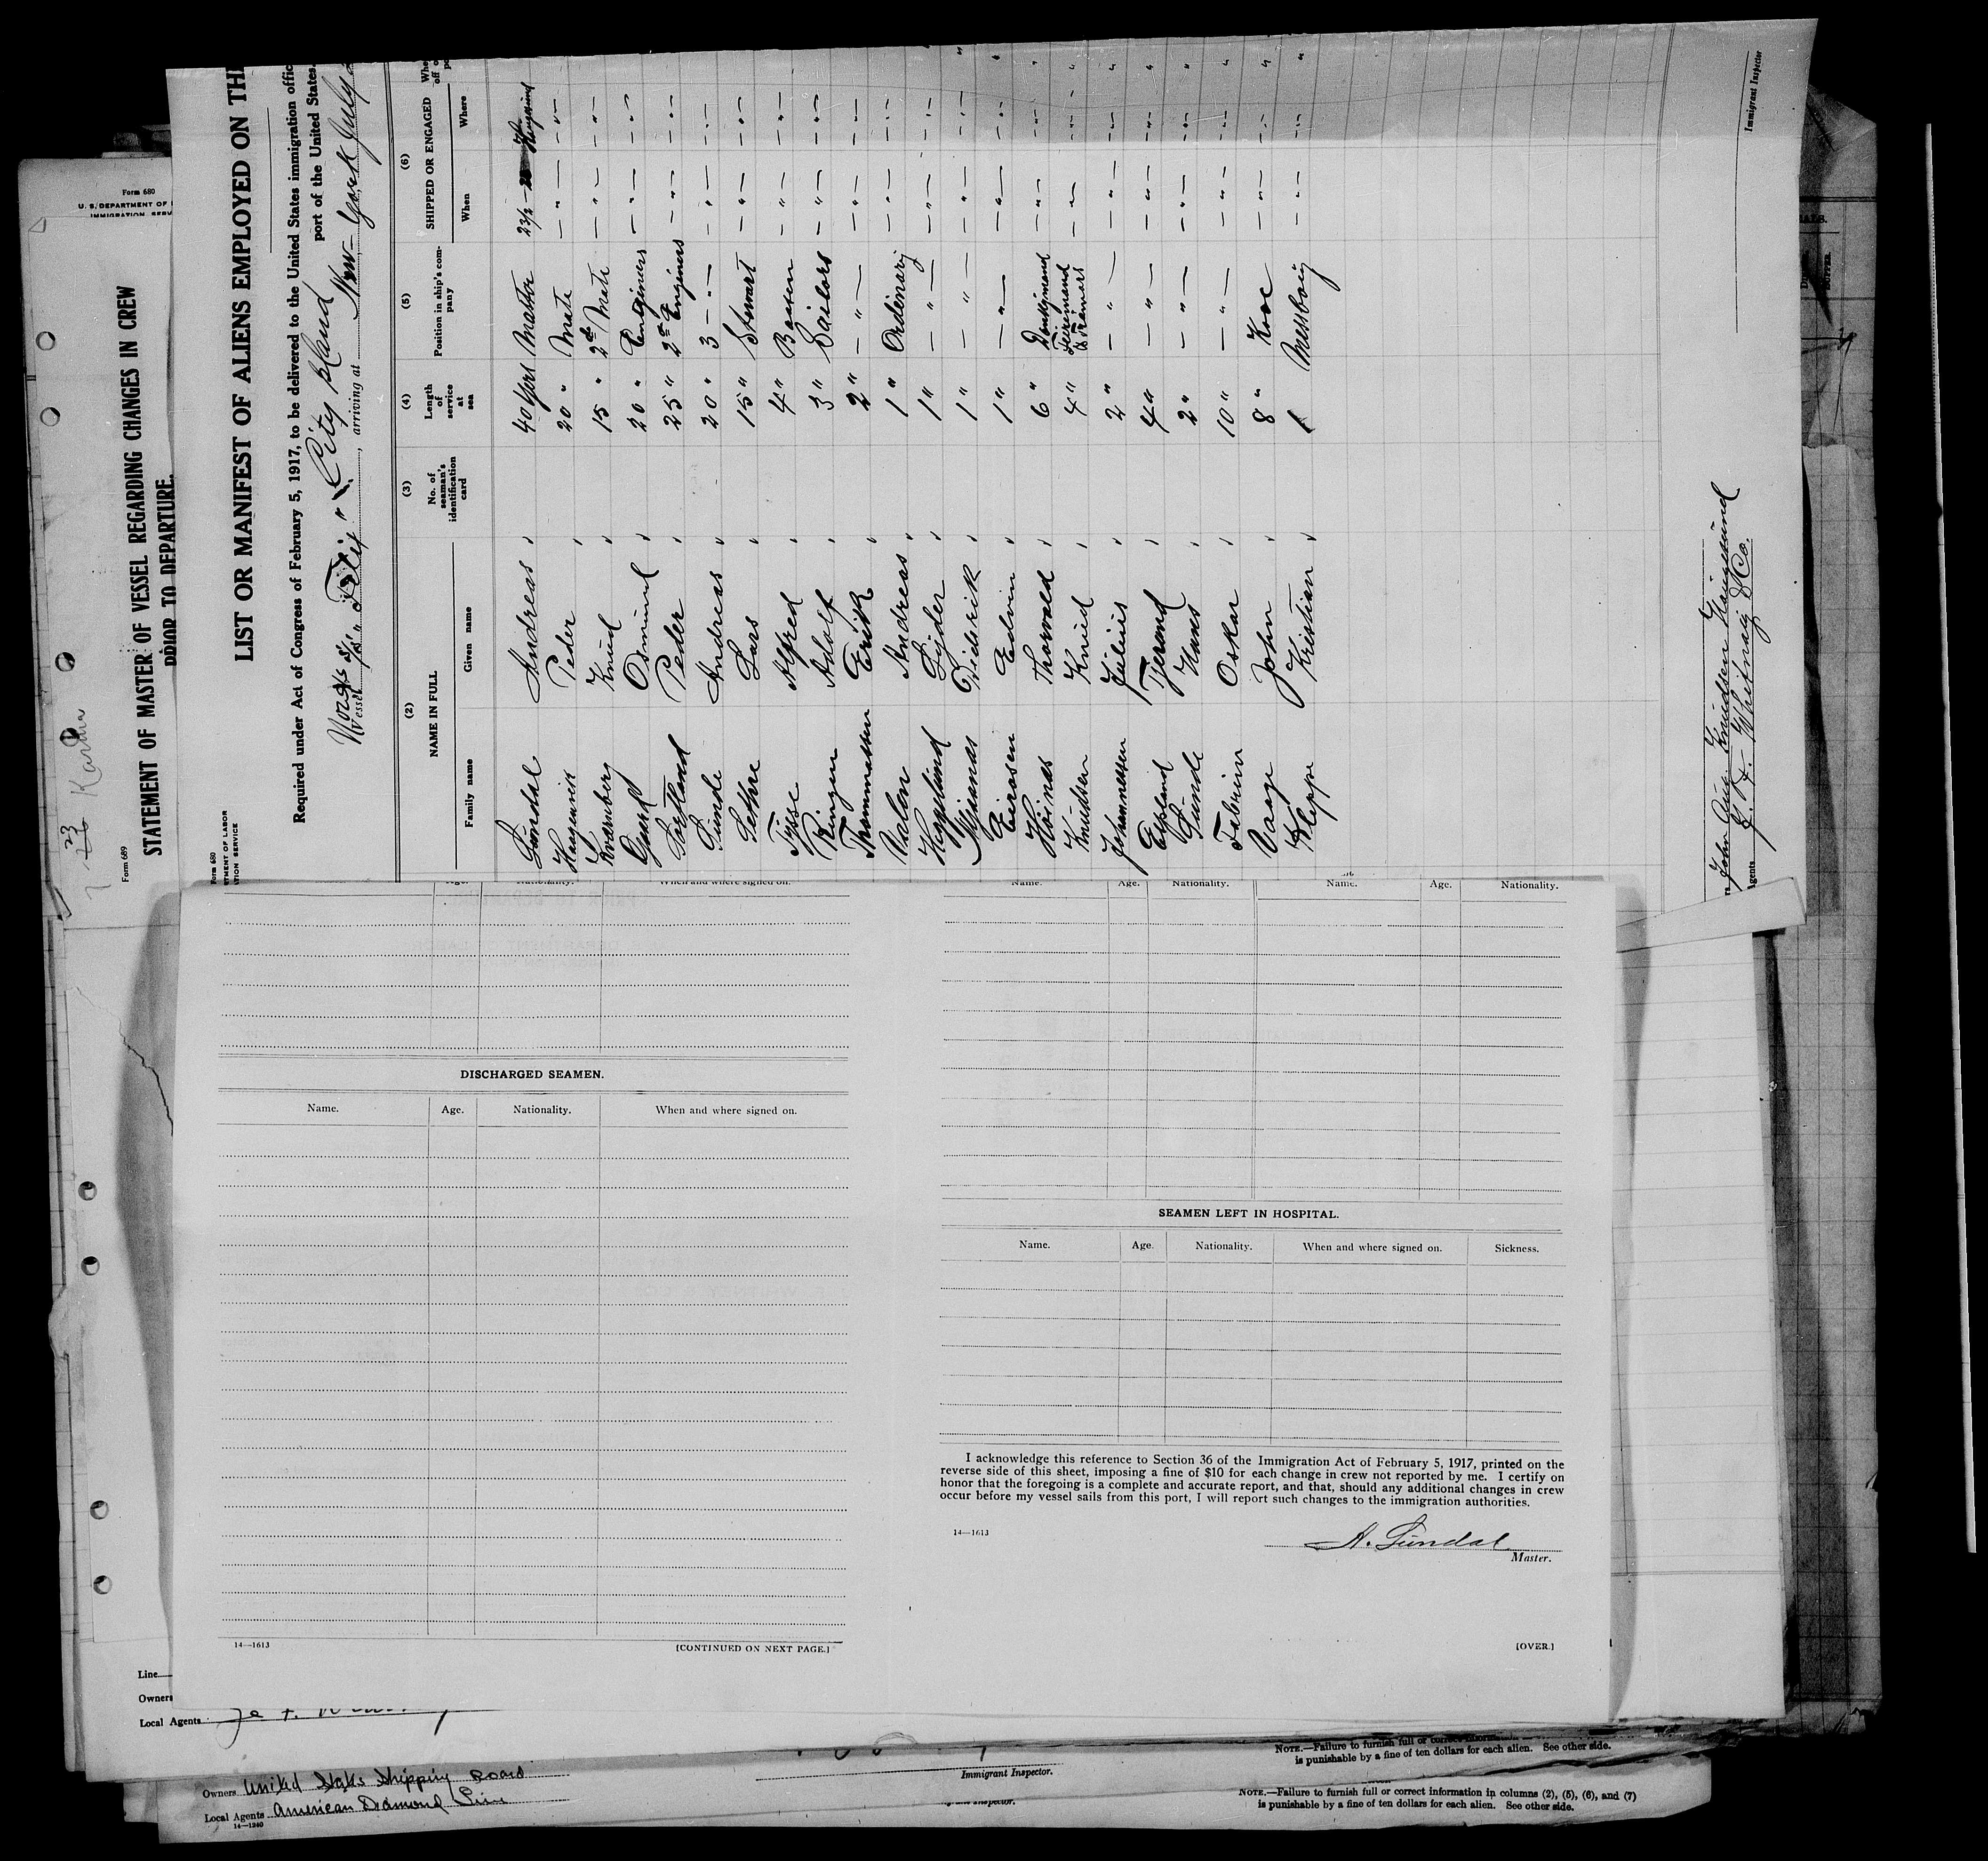 Form 680
U. S. DEPARTMENT OF
IMMIGRATION SERV
7-23 Karma
Form 689
STATEMENT OF MASTER OF VESSEL REGARDING CHANGES IN CREW
PRIOR TO DEPARTURE.
Form 680
TMENT OF LABOR
ATION SERVICE
LIST OR MANIFEST OF ALIENS EMPLOYED ON TH
Required under Act of Congress of February 5, 1917, to be delivered to the United States immigration offic
port of the United States.
Vessel arriving at New-York July
(2) (3) (4) (5) (6)
NAME IN FULL No. of seaman's identification card Length of service at sea Position in ship's company SHIPPED OR ENGAGED
Family name Given name When Where
Sundal Andreas 40 yrs Master 23/2
Peder 20 " Mate
Kvarnberg Knud 15 " 2de Mate
Osmund 20 " Engineers
Peder 25 " 2de Engineers
Sunde Andreas 20 " 3 - " -
Sethre Lars 15 " Stewart
Tysse Alfred 4 " Bosten
Ringen Adolf 3 " Sailors
Thommassen Erik 2 " - " -
Valen Andreas 1 " Ordinary
1 " - " -
Diderik 1 " - " -
Edvin 1 " - " -
Thorvald 6 " Donkymand
Knudsen Knud 4 "
Johannessen Julius 2 " - " -
Espland 4 " - " -
Sunde Hans 2 " - " -
Oskar 10 " - " -
Vaage John 8 " Koc
Kleppe Kristian 1
John Knudsen Haugesund
Agents J. F. Whitney & Co.
Immigrant Inspector
Age. Nationality. When and where signed on.
Name. Age. Nationality. Name. Age. Nationality.
DISCHARGED SEAMEN.
Name. Age. Nationality. When and where signed on.
14—1613 [CONTINUED ON NEXT PAGE.]
SEAMEN LEFT IN HOSPITAL.
Name. Age. Nationality. When and where signed on. Sickness.
I acknowledge this reference to Section 36 of the Immigration Act of February 5, 1917, printed on the
reverse side of this sheet, imposing a fine of $10 for each change in crew not reported by me. I certify on
honor that the foregoing is a complete and accurate report, and that, should any additional changes in crew
occur before my vessel sails from this port, I will report such changes to the immigration authorities.
14—1613
A. Sundal
Master.
[OVER.]
Line
Owners
Local Agents
Immigrant Inspector.
NOTE.—Failure to furnish full or correct information
is punishable by a fine of ten dollars for each alien. See other side.
Owners United States Shipping Board
Local Agents American Diamond Line
14—1240
NOTE.—Failure to furnish full or correct information in columns (2), (5), (6), and (7)
is punishable by a fine of ten dollars for each alien. See other side.